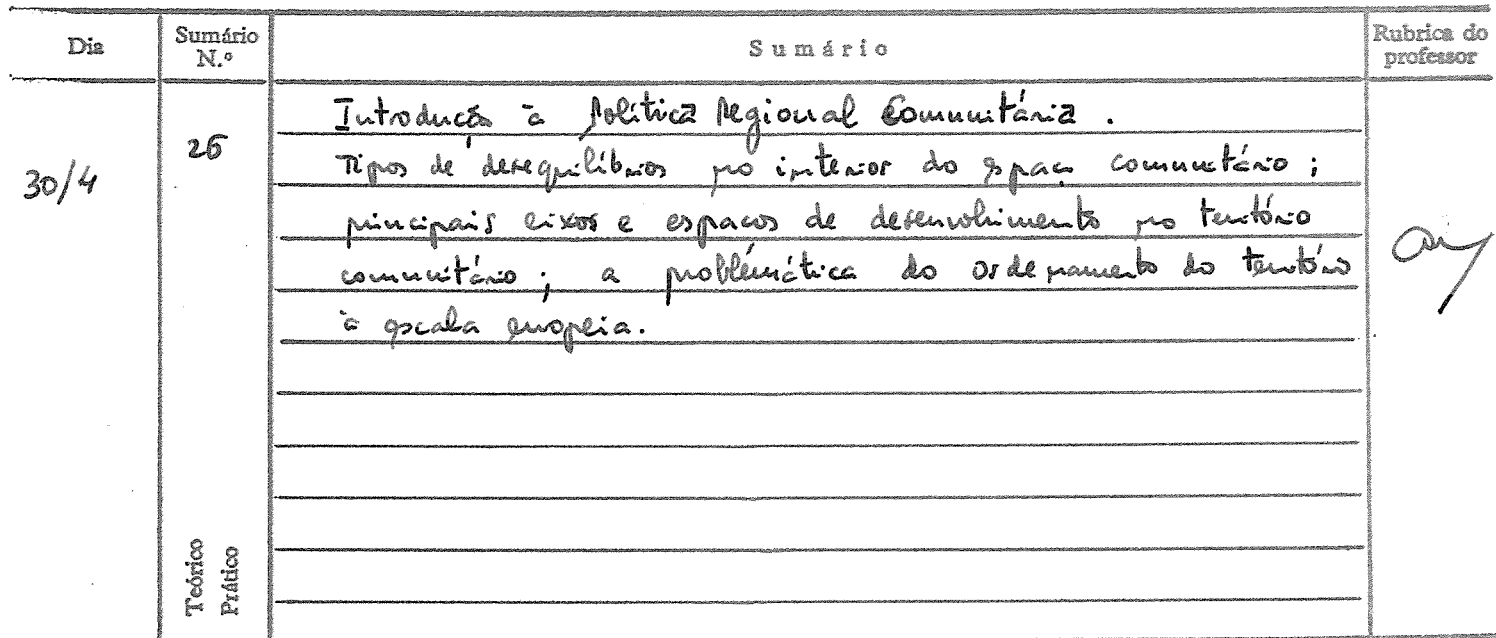 Dia Sumário N.º Sumário Rubrica do professor
30/4
26
Introdução à Política Regional Comunitária.
Tipos de desequilíbrios no interior do espaço comunitário;
principais eixos e espaços de desenvolvimento no território
comunitário; a problemática do ordenamento do território
à escala europeia.
Teórico
Prático